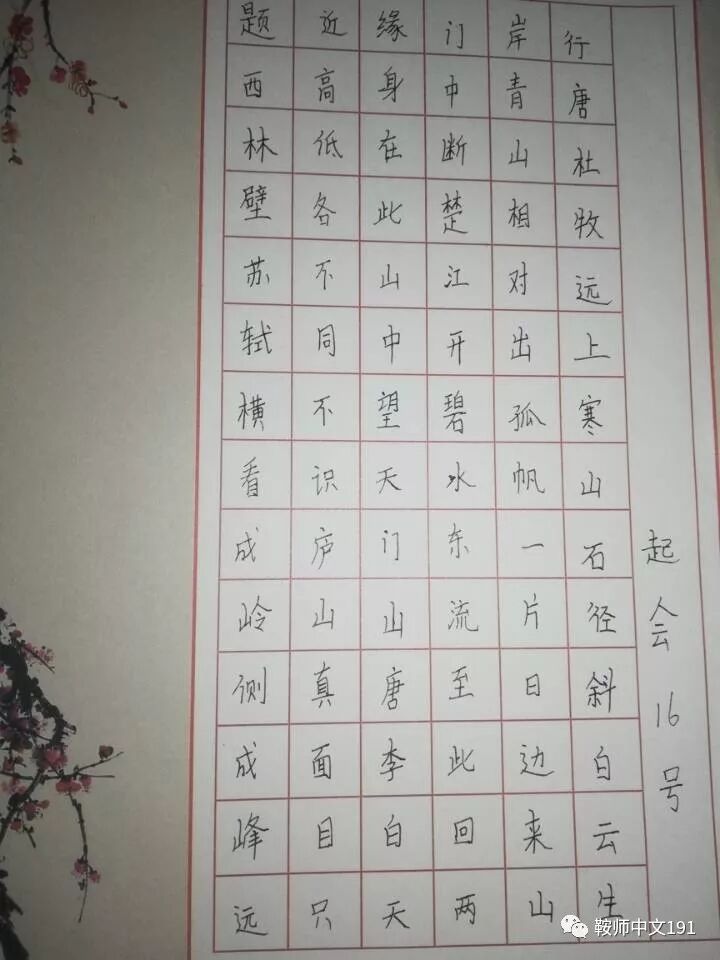 题西林壁苏轼横看成岭侧成峰远
近高低各不同不识庐山真面目只
缘身在此山中望天门山唐李白天
门中断楚江开碧水东流至此回两
岸青山相对出孤帆一片日边来山
行唐杜牧远上寒山石径斜白云生
起会16号
鞍师中文191